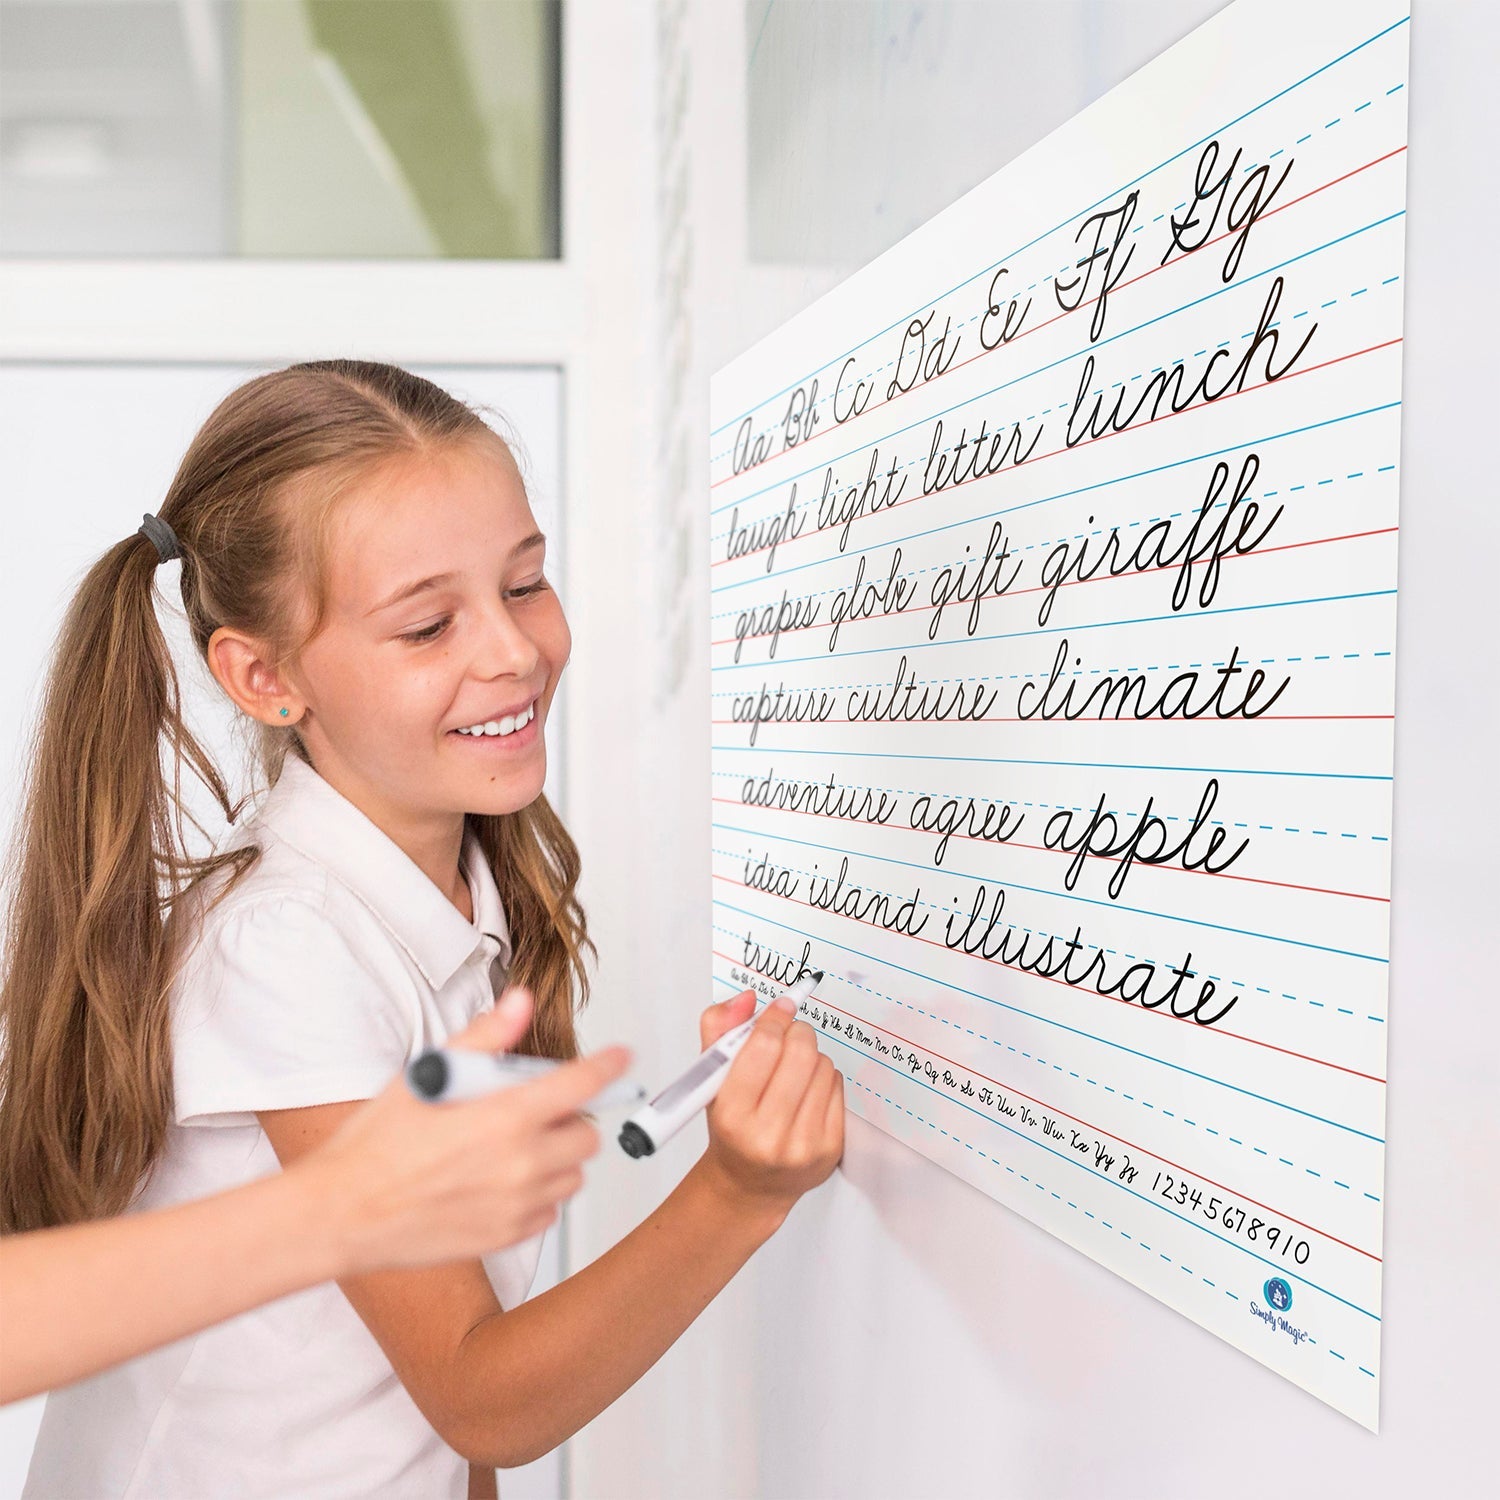 Aa Bb Cc Dd Ee Ff Gg
laugh light letter lunch
grapes globe gift giraffe
capture culture climate
adventure agree apple
idea island illustrate
truck
Aa Bb Cc Dd Ee Hh Ii Jj Kk Ll Mm Nn Oo Pp Qq Rr Ss Tt Uu Vv Ww Xx Yy Zz 12345678910
Simply Magic